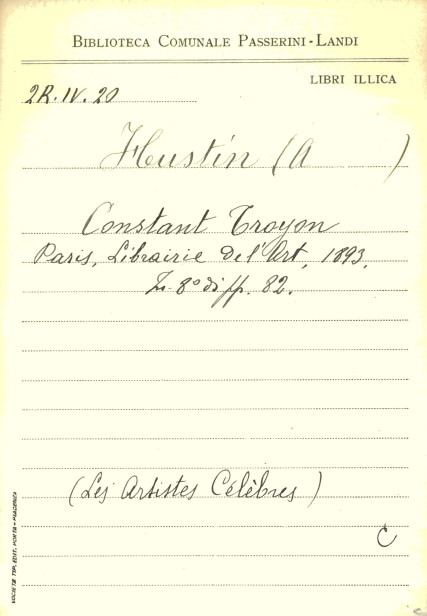 BIBLIOTECA COMUNALE PASSERINI-LANDI
LIBRI ILLICA
2R.IV.20
Hustin (A )
Constant Troyon
Paris, Librairie de l'Art, 1893.
In 8° di pp. 82.
(Les Artistes Célèbres)
C
SOCIETÀ TIP. EDIT. PORTA - PIACENZA